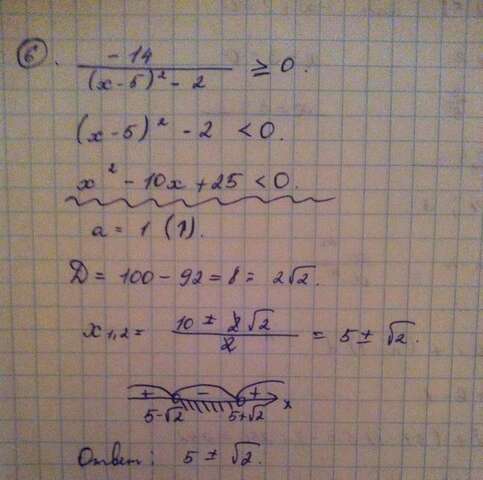 6. -14 / ((x-5)² - 2) ≥ 0.
(x-5)² - 2 < 0.
x² - 10x + 25 < 0.
a = 1 (↑).
D = 100 - 92 = 8 = 2√2.
x₁,₂ = (10 ± 2√2) / 2 = 5 ± √2.
+ - +
5-√2 5+√2 x
Ответ: 5 ± √2.